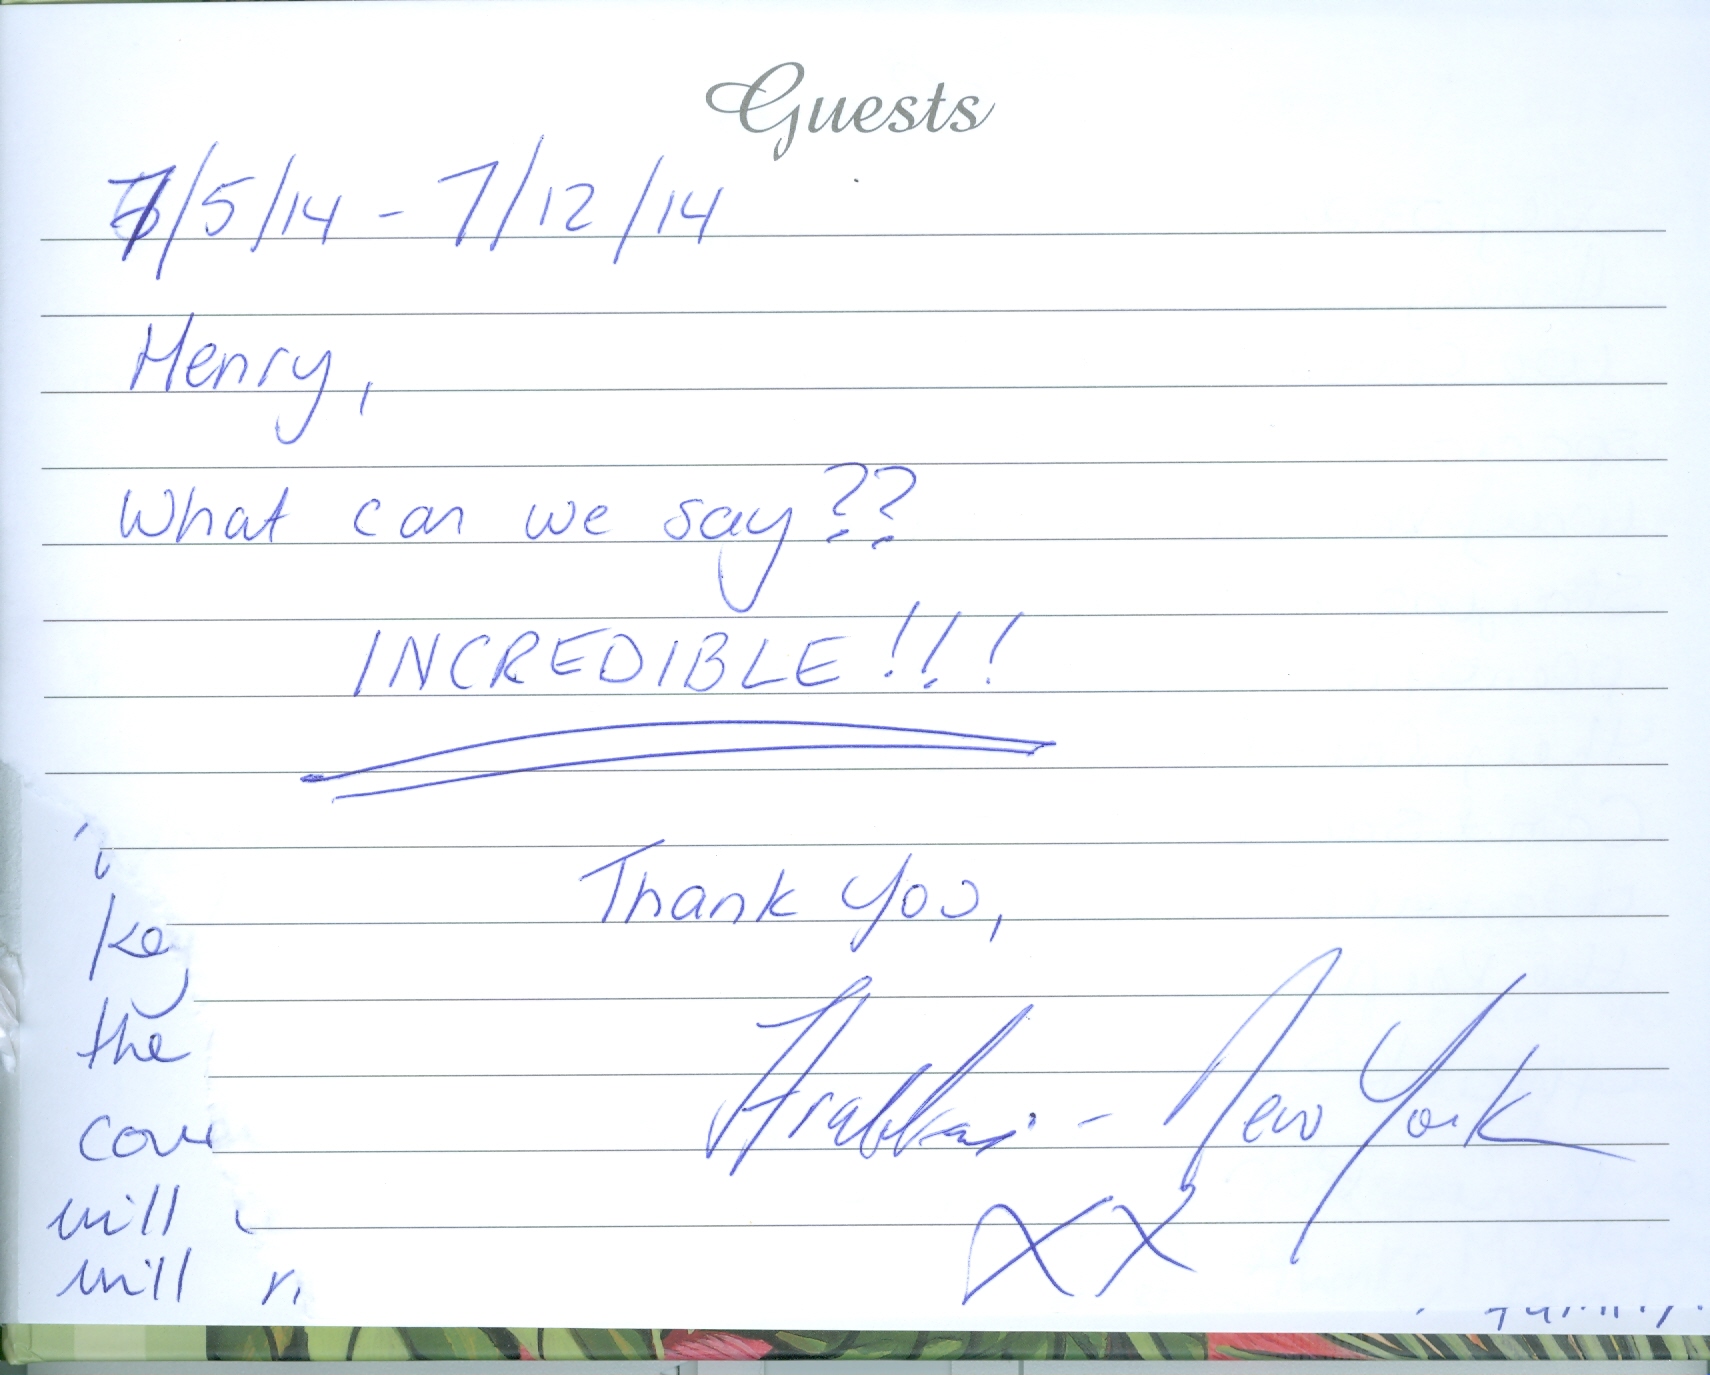 Guests
7/5/14 - 7/12/14
Henry,
What can we say??
INCREDIBLE!!!
Thank you,
- New York
xx
the
will
will